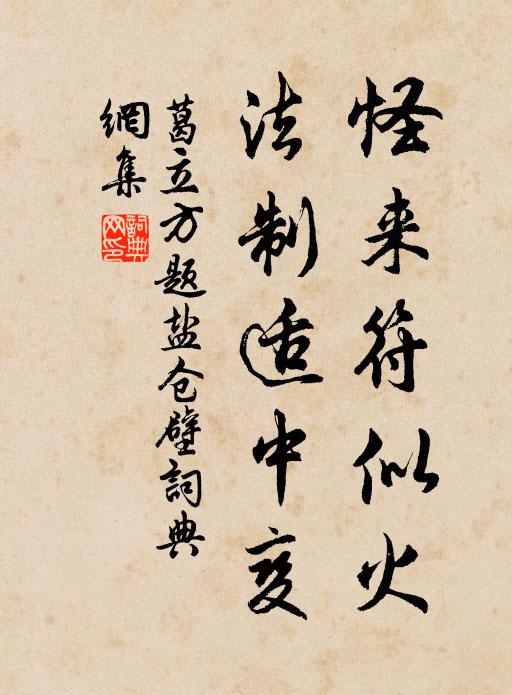 怪来符似火
法制适中变
葛立方题盐仓壁詞典
網集
詞典网印